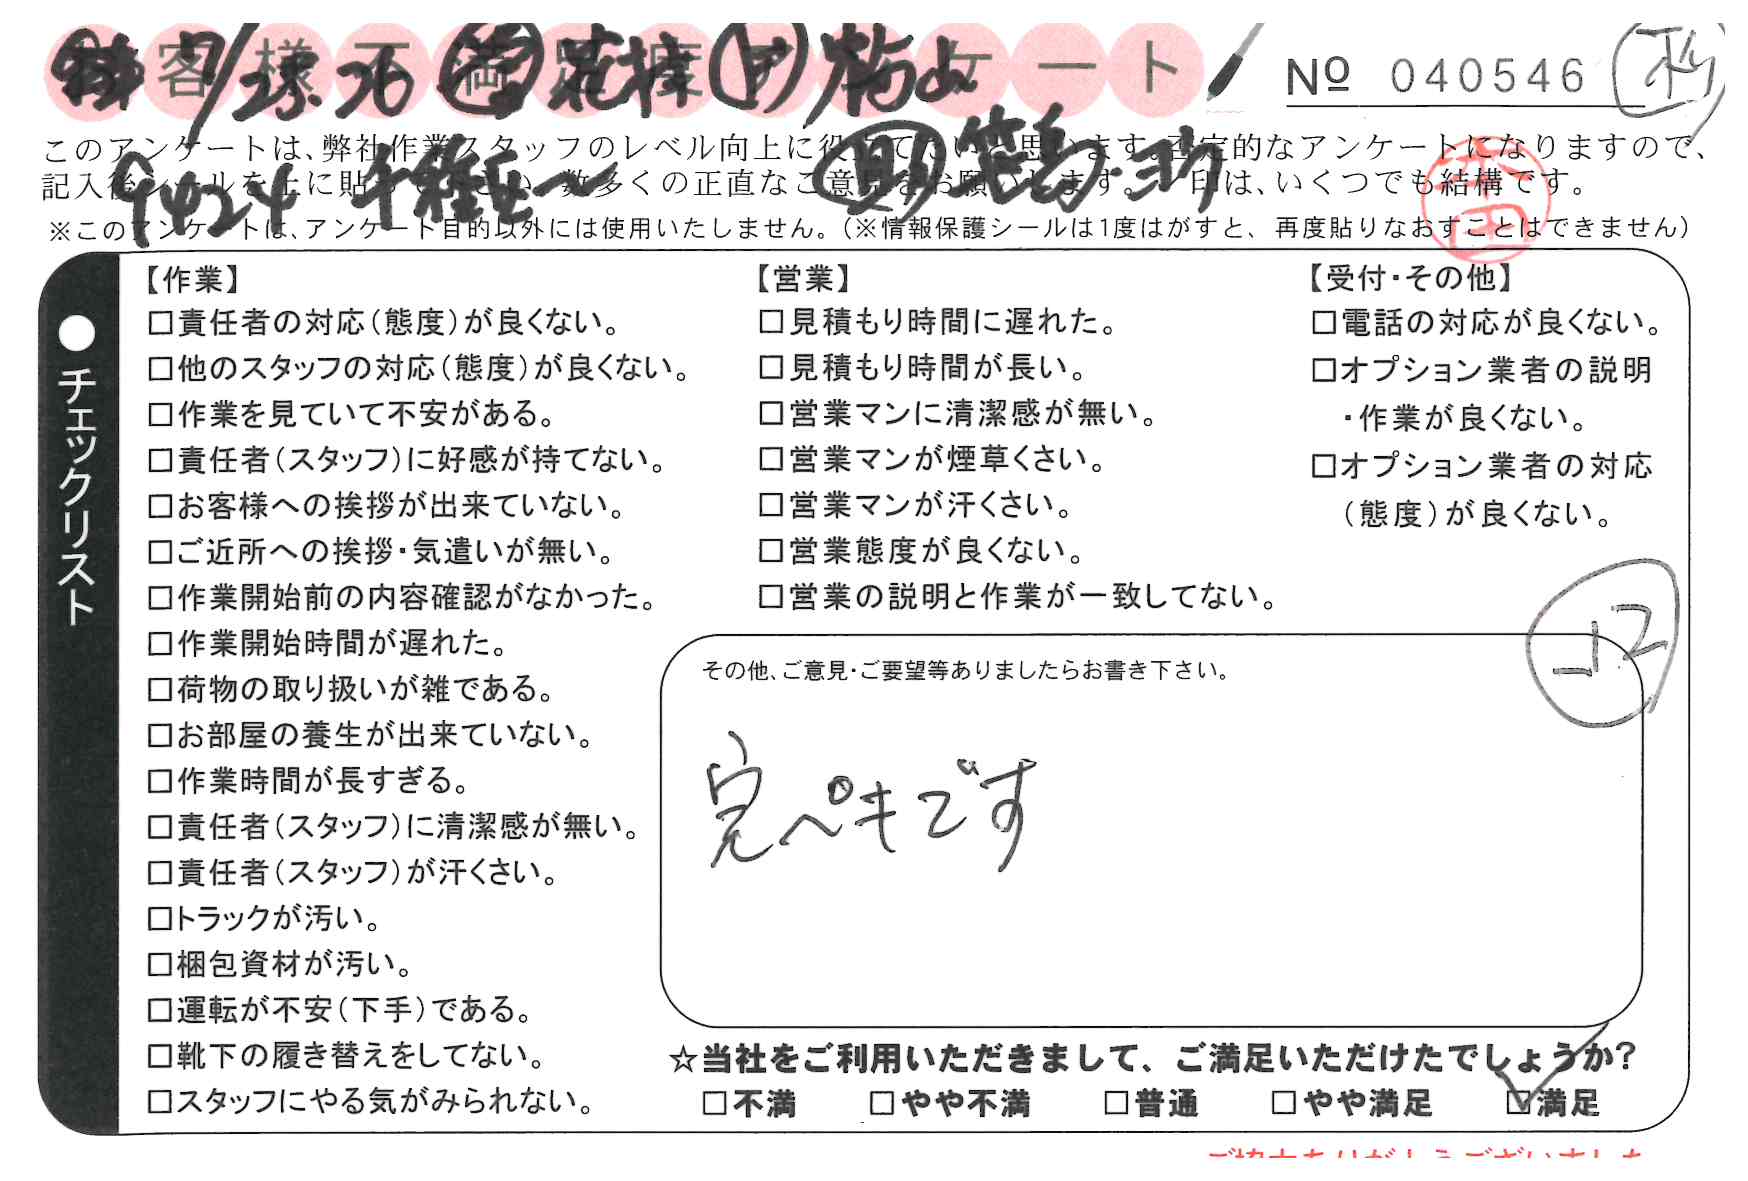 お客様不満足度アンケート
№ 040546
7/25.26
このアンケートは、弊社作業スタッフのレベル向上に役立てたいと思います。否定的なアンケートになりますので、
記入後シールを上に貼って下さい。数多くの正直なご意見をお願いします。レ印は、いくつでも結構です。
9424
※このアンケートは、アンケート目的以外には使用いたしません。(※情報保護シールは1度はがすと、再度貼りなおすことはできません)
●チェックリスト
【作業】
□責任者の対応(態度)が良くない。
□他のスタッフの対応(態度)が良くない。
□作業を見ていて不安がある。
□責任者(スタッフ)に好感が持てない。
□お客様への挨拶が出来ていない。
□ご近所への挨拶・気遣いが無い。
□作業開始前の内容確認がなかった。
□作業開始時間が遅れた。
□荷物の取り扱いが雑である。
□お部屋の養生が出来ていない。
□作業時間が長すぎる。
□責任者(スタッフ)に清潔感が無い。
□責任者(スタッフ)が汗くさい。
□トラックが汚い。
□梱包資材が汚い。
□運転が不安(下手)である。
□靴下の履き替えをしてない。
□スタッフにやる気がみられない。
【営業】
□見積もり時間に遅れた。
□見積もり時間が長い。
□営業マンに清潔感が無い。
□営業マンが煙草くさい。
□営業マンが汗くさい。
□営業態度が良くない。
□営業の説明と作業が一致してない。
【受付・その他】
□電話の対応が良くない。
□オプション業者の説明
・作業が良くない。
□オプション業者の対応
(態度)が良くない。
その他、ご意見・ご要望等ありましたらお書き下さい。
完ペキです
☆当社をご利用いただきまして、ご満足いただけたでしょうか?
□不満 □やや不満 □普通 □やや満足 ☑満足
ご協力ありがとうございました